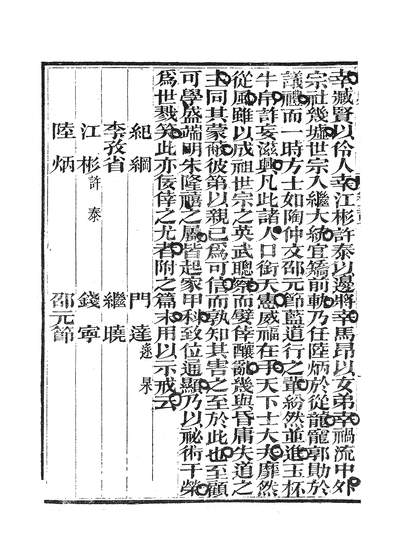 幸臧賢以伶人幸江彬許泰以邊將幸馬昂以女弟幸禍流中外
宗社幾墟世宗入繼大統宜矯前軌乃任陸炳於從龍寵郭勛於
議禮而一時方士如陶仲文邵元節藍道行之輩紛然並進玉杯
牛帛詐妄滋興凡此諸人口銜天憲威福在手天下士大夫靡然
從風雖以成祖世宗之英武聰察而嬖倖釀亂幾與昏庸失道之
主同其蒙蔽彼第以親己為可信而孰知其害之至於此也至顧
可學盛端明朱隆禧之屬皆起家甲科致位通顯乃以祕術干榮
為世戮笑此亦佞倖之尤者附之篇末用以示戒云
紀綱 門達 逯杲
李孜省 繼曉
江彬 許泰 錢寧
陸炳 邵元節